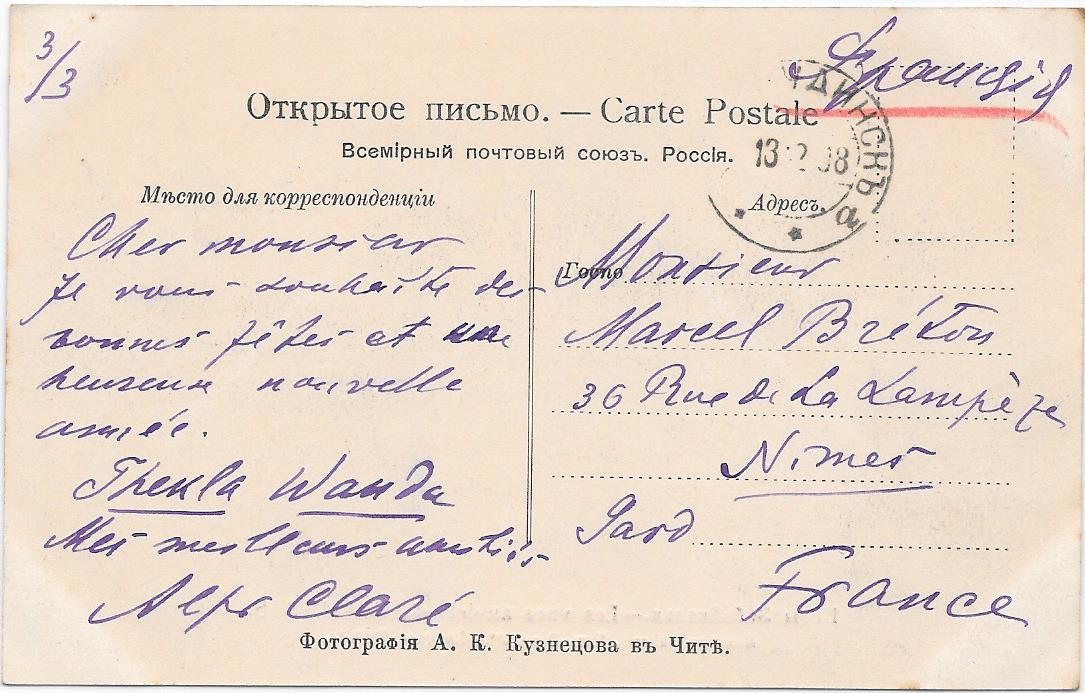 3/3
Франція
Открытое письмо. — Carte Postale
Всемірный почтовый союзъ. Россія.
ДИНСКЪ
13 2 08
а
Мѣсто для корреспонденціи
Адресъ.
Cher monsieur
Je vous souhaite des
bonnes fêtes et une
heureuse nouvelle
année.
Thekla Wanda
Mes meilleurs
Claré
Госпо
Monsieur
Marcel Bréton
36 Rue de La Lampèze
Nimes
Gard
France
Фотографія А. К. Кузнецова въ Читѣ.